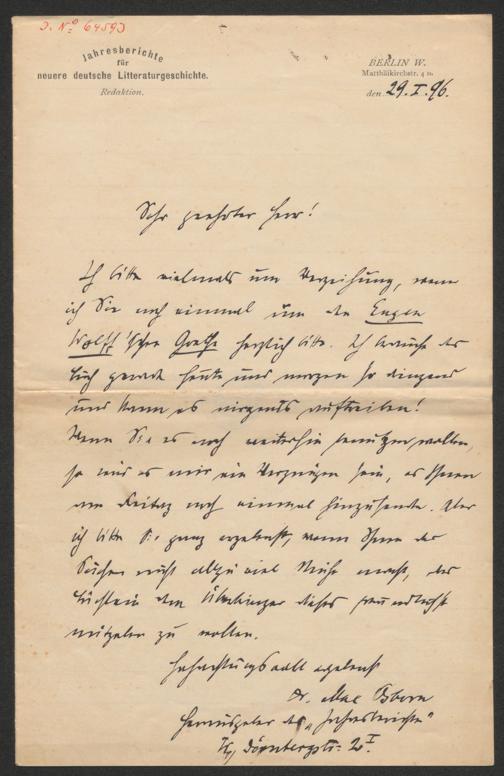 J. No 64593
Jahresberichte
für
neuere deutsche Litteraturgeschichte.
Redaktion.
BERLIN W.
Matthäikirchstr. 4 II.
den 29. I. 96.
Sehr geehrter Herr!
Ich bitte vielmals um Verzeihung, wenn
ich Sie noch einmal um den Eugen
Wolff'schen Goethe herzlich bitte. Ich brauche das
Buch gerade heute und morgen so dringend
und kann es nirgends auftreiben!
Wenn Sie es noch weiterhin benutzen wollen,
so wird es mir ein Vergnügen sein, es Ihnen
am Freitag noch einmal hinzusenden. Aber
ich bitte Sie ganz ergebenst, wenn Ihnen das
Suchen nicht allzu viel Mühe macht, das
Büchlein dem Überbringer dieses freundlichst
mitgeben zu wollen.
Hochachtungsvoll ergebenst
Dr. Max Osborn
Herausgeber der "Jahresberichte"
W, Dörnbergstr. 2 I.